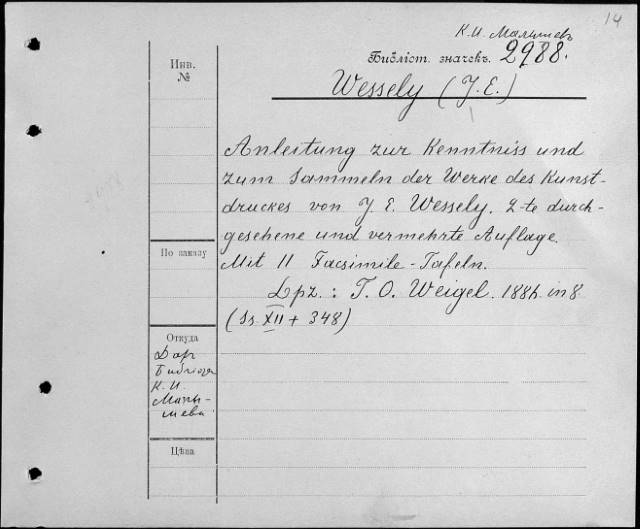 14
К.И. Малышевъ
Библіот. значекъ. 2988.
Инв.
№
Wessely (J. E.)
Anleitung zur Kenntniss und
zum Sammeln der Werke des Kunst-
druckes von J. E. Wessely. 2-te durch-
gesehene und vermehrte Auflage.
Mit 11 Facsimile-Tafeln.
Lpz.: T. O. Weigel. 1886. in 8.
(Ss. XII + 348)
По заказу
Откуда
Дар
Библіот
К. И.
Малы-
шева.
Цѣна